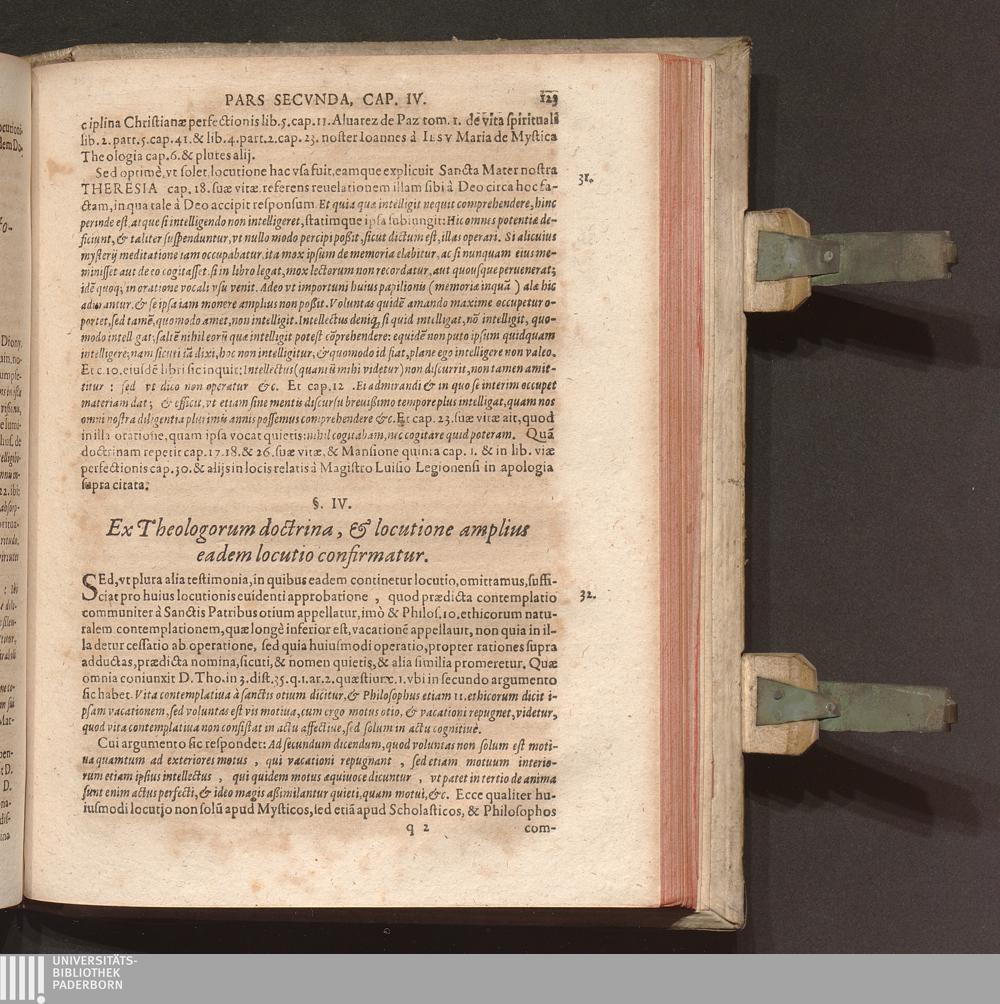 PARS SECVNDA, CAP. IV. 123
ciplina Christianæ perfectionis lib.5.cap.11. Aluarez de Paz tom. 1. de vita spirituali
lib.2.part.5.cap.41.& lib.4.part.2.cap.23. noster Ioannes à IESV Maria de Mystica
Theologia cap.6.& plutes alij.
Sed optimè,vt solet,locutione hac vsa fuit,eamque explicuit Sancta Mater nostra
31.
THERESIA cap. 18. suæ vitæ.referens reuelationem illam sibi à Deo circa hoc fa-
ctam,in qua tale à Deo accipit responsum Et quia quæ intelligit nequit comprehendere,hinc
perinde est,atque si intelligendo non intelligeret,statimque ipsa subiungit: Hic omnes potentiæ de-
ficiunt,& taliter suspenduntur,vt nullo modo percipi poßit,sicut dictum est,illas operari. Si alicuius
mysterij meditatione iam occupabatur,ita mox ipsum de memoria elabitur,ac si nunquam eius me-
minisset aut de eo cogitasset.si in libro legat,mox lectorum non recordatur,aut quousque peruenerat;
idẽ quoq; in oratione vocali vsu venit. Adeo vt importuni huius papilionis (memoriæ inquã) alæ hic
adurantur.& se ipsa iam monere amplius non poßit. Voluntas quidẽ amando maxime occupetur o-
portet,sed tamẽ,quomodo amet,non intelligit. Intellectus deniq; si quid intelligat,nõ intelligit, quo-
modo intelligat;saltẽ nihil eorũ quæ intelligit potest cõprehendere: equidẽ non puto ipsum quidquam
intelligere;nam sicuti iã dixi,hoc non intelligitur,& quomodo id fiat,plane ego intelligere non valeo.
Et c.10.eiusdẽ libri sic inquit: Intellectus (quantũ mihi videtur) non discurrit,non tamen amit-
titur : sed vt dico non operatur &c. Et cap. 12 . Et admirandi & in quo se interim occupet
materiam dat; & efficit,vt etiam sine mentis discursu breuißimo tempore plus intelligat,quam nos
omni nostra diligentia plurimis annis possemus comprehendere &c. Et cap. 23. suæ vitæ ait, quod
in illa oratione,quam ipsa vocat quietis: nihil cogitabam,nec cogitare quid poteram. Quã
doctrinam repetit cap.17.18.& 26.suæ vitæ,& Mansione quinta cap. 1. & in lib. viæ
perfectionis cap.30.& alijs in locis relatis à Magistro Luisio Legionensi in apologia
supra citata.
§. IV.
Ex Theologorum doctrina, & locutione amplius
eadem locutio confirmatur.
SEd,vt plura alia testimonia,in quibus eadem continetur locutio,omittamus,suffi-
ciat pro huius locutionis euidenti approbatione , quod prædicta contemplatio
32.
communiter à Sanctis Patribus otium appellatur,imò & Philos.10.ethicorum natu-
ralem contemplationem,quæ longè inferior est,vacationẽ appellauit, non quia in il-
la detur cessatio ab operatione, sed quia huiusmodi operatio,propter rationes supra
adductas,prædicta nomina,sicuti,& nomen quietis,& alia similia promeretur. Quæ
omnia coniunxit D.Tho.in 3.dist.35.q.1.ar.2.quæstiunc.1.vbi in secundo argumento
sic habet. Vita contemplatiua à sanctis otium dicitur,& Philosophus etiam 11.ethicorum dicit i-
psam vacationem,sed voluntas est vis motiua,cum ergo motus otio, & vacationi repugnet,videtur,
quod vita contemplatiua non consistat in actu affectiuæ,sed solum in actu cognitiuæ.
Cui argumento sic respondet: Ad secundum dicendum,quod voluntas non solum est moti-
ua quamtum ad exteriores motus , qui vacationi repugnant , sed etiam motuum interio-
rum etiam ipsius intellectus , qui quidem motus æquiuoce dicuntur , vt patet in tertio de anima
sunt enim actus perfecti,& ideo magis aßimilantur quieti,quam motui,&c. Ecce qualiter hu-
iusmodi locutio non solũ apud Mysticos,sed etiã apud Scholasticos, & Philosophos
q 2 com-
UNIVERSITÄTS-
BIBLIOTHEK
PADERBORN